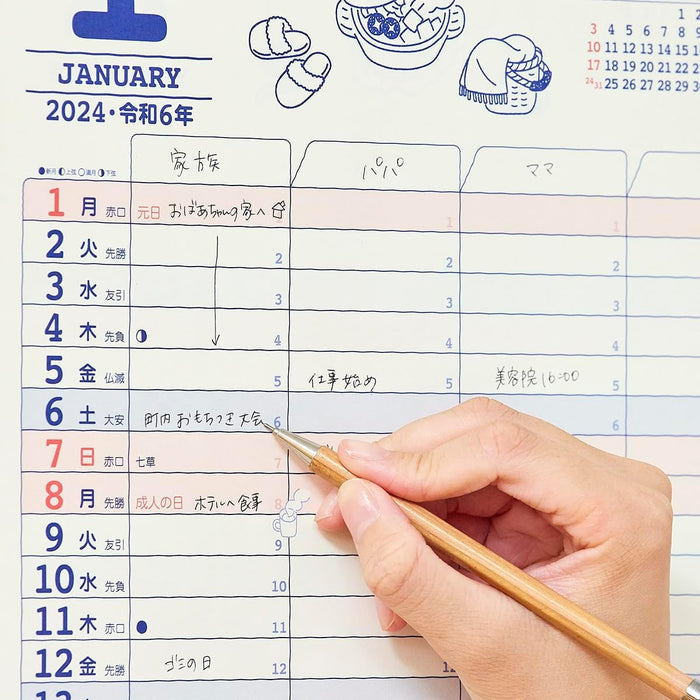 1
JANUARY
2024・令和6年
1 2
3 4 5 6 7 8 9
10 11 12 13 14 15 16
17 18 19 20 21 22 23
24/31 25 26 27 28 29 30
●新月 ◐上弦 ○満月 ◑下弦
家族 パパ ママ
1 月 赤口 元日 おばあちゃんの家へ 1
2 火 先勝 2 2 2
3 水 友引 3 3 3
4 木 先負 4 4 4
5 金 仏滅 5 仕事始め 5 美容院 16:00 5
6 土 大安 町内おもちつき大会 6 6
7 日 赤口 七草 7
8 月 先勝 成人の日 ホテルへ食事 8
9 火 友引 9
10 水 先負 10
11 木 赤口 11
12 金 先勝 ゴミの日 12 12